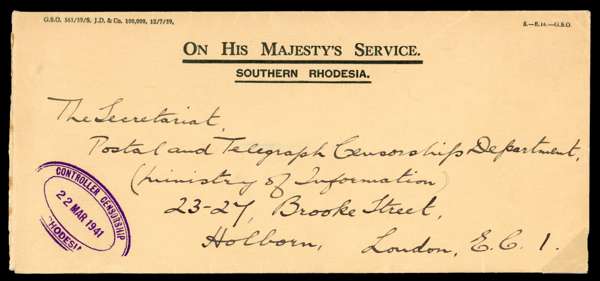 G.S.O. 561/39/S. J.D. & Co. 100,000, 12/7/39.
S.—E.10.—G.S.O.
ON HIS MAJESTY'S SERVICE.
SOUTHERN RHODESIA.
The Secretariat,
Postal and Telegraph Censorships Department,
(Ministry of Information)
23-27, Brooke Street,
Holborn, London, E.C.1.
CONTROLLER CENSORSHIP
22 MAR 1941
RHODESIA